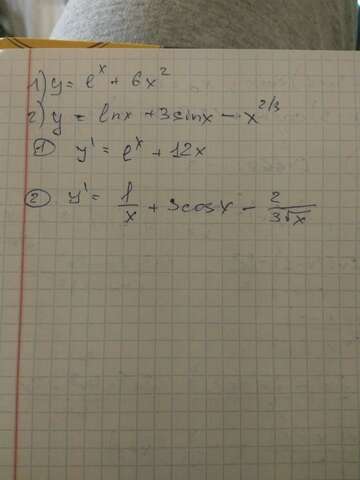 1) y = e^x + 6x^2
2) y = lnx + 3sinx - x^2/3
① y' = e^x + 12x
② y' = 1/x + 3cosx - 2/(3√x)